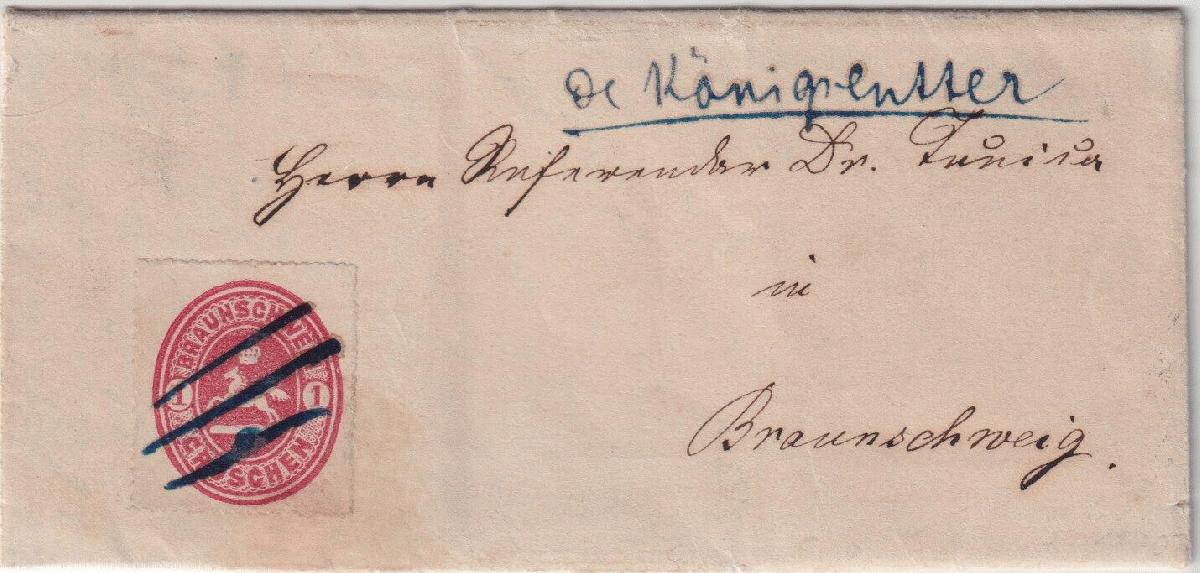 de Königslutter
Herrn Referendar Dr. Tunica
in
Braunschweig.
BRAUNSCHWEIG
1 1
GROSCHEN